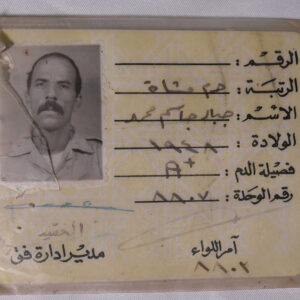 الرقم :
الرتبة : جـ م مشاة
الاسم : جبار جاسم محمد
الولادة : ١٩٤٨
فصيلة الدم : A+
رقم الوحلة : ٨٨٠٧
العقيد
مدير ادارة فق
آمر اللواء
٨٨٠٢